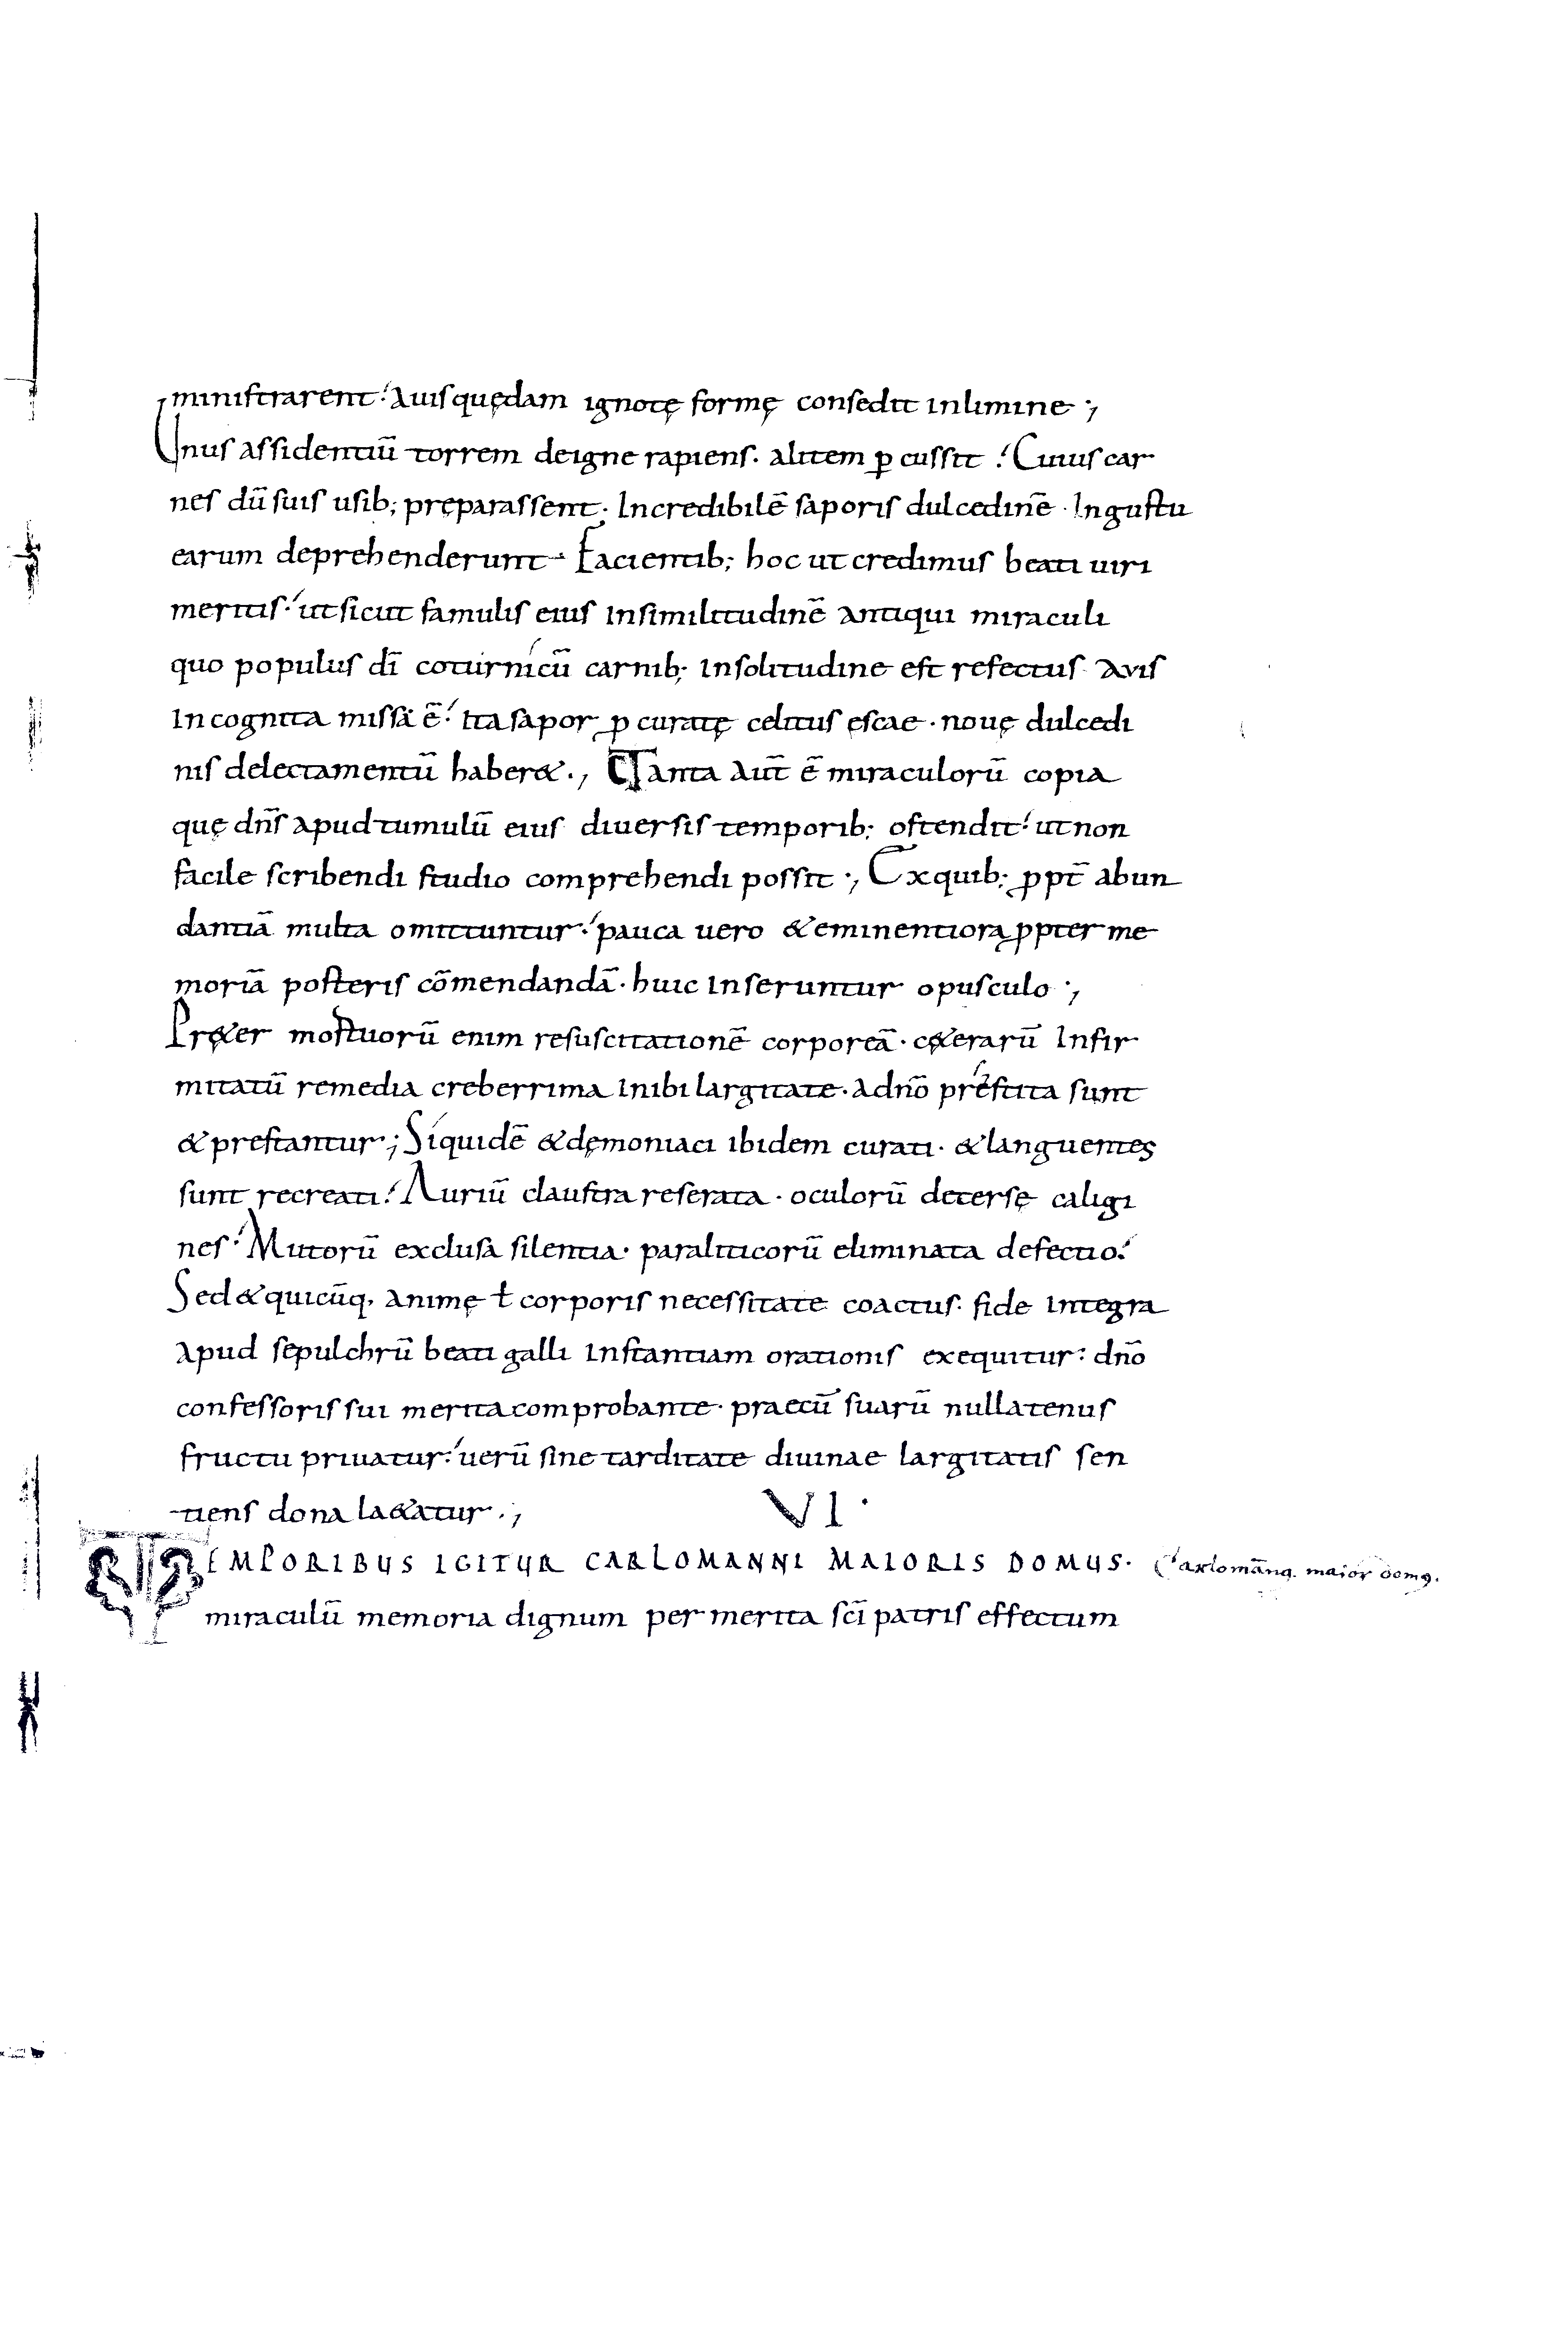 ministrarent; auis quędam ignotę formę consedit in limine ;
Unus assidentiū torrem de igne rapiens. alitem ꝑcussit ; Cuius car
nes dū suis usib; pręparassent. Incredibilē saporis dulcedinē. In gustu
earum deprehenderunt. Facientib; hoc ut credimus beati uiri
meritis. ut sicut famulis eius in similitudinē antiqui miraculi
quo populus dī coturnicū carnib; in solitudine est refectus auis
incognita missa ē. ita sapor ꝓcuratę celitus escae. nouę dulcedi
nis delectamentū haber&. ; Tanta aut̄ ē miraculorū copia
quę dn̄s apud tumulū eius diuersis temporib; ostendit. ut non
facile scribendi studio comprehendi possit ; Ex quib; ꝓpt̄ abun
dantiā multa omittuntur. pauca uero & eminentiora ꝓpter me
moriā posteris cōmendandā. huic inseruntur opusculo ;
Pręt&er mortuorū enim resuscitationē corporeā. cę&erarū infir
mitatū remedia creberrima inibi largitate. a dn̄o prestita sunt
& prestantur ; Siquidē & dęmoniaci ibidem curati. & languentes
sunt recreati. Auriū claustra reserata. oculorū detersę caligi
nes. Mutorū exclusa silentia. paraliticorū eliminata defectio.
Sed & quicūq. animę ł corporis necessitate coactus. fide integra
apud sepulchrū beati galli instantiam orationis exequitur. dn̄o
confessoris sui merita comprobante. praecū suarū nullatenus
fructu priuatur. uerū sine tarditate diuinae largitatis sen
tiens dona la&atur. ;
VI.
TEMPORIBUS IGITUR CARLOMANNI MAIORIS DOMUS.
Carlomānꝰ. maior domꝰ.
miraculū memoria dignum per merita sc̄i patris effectum